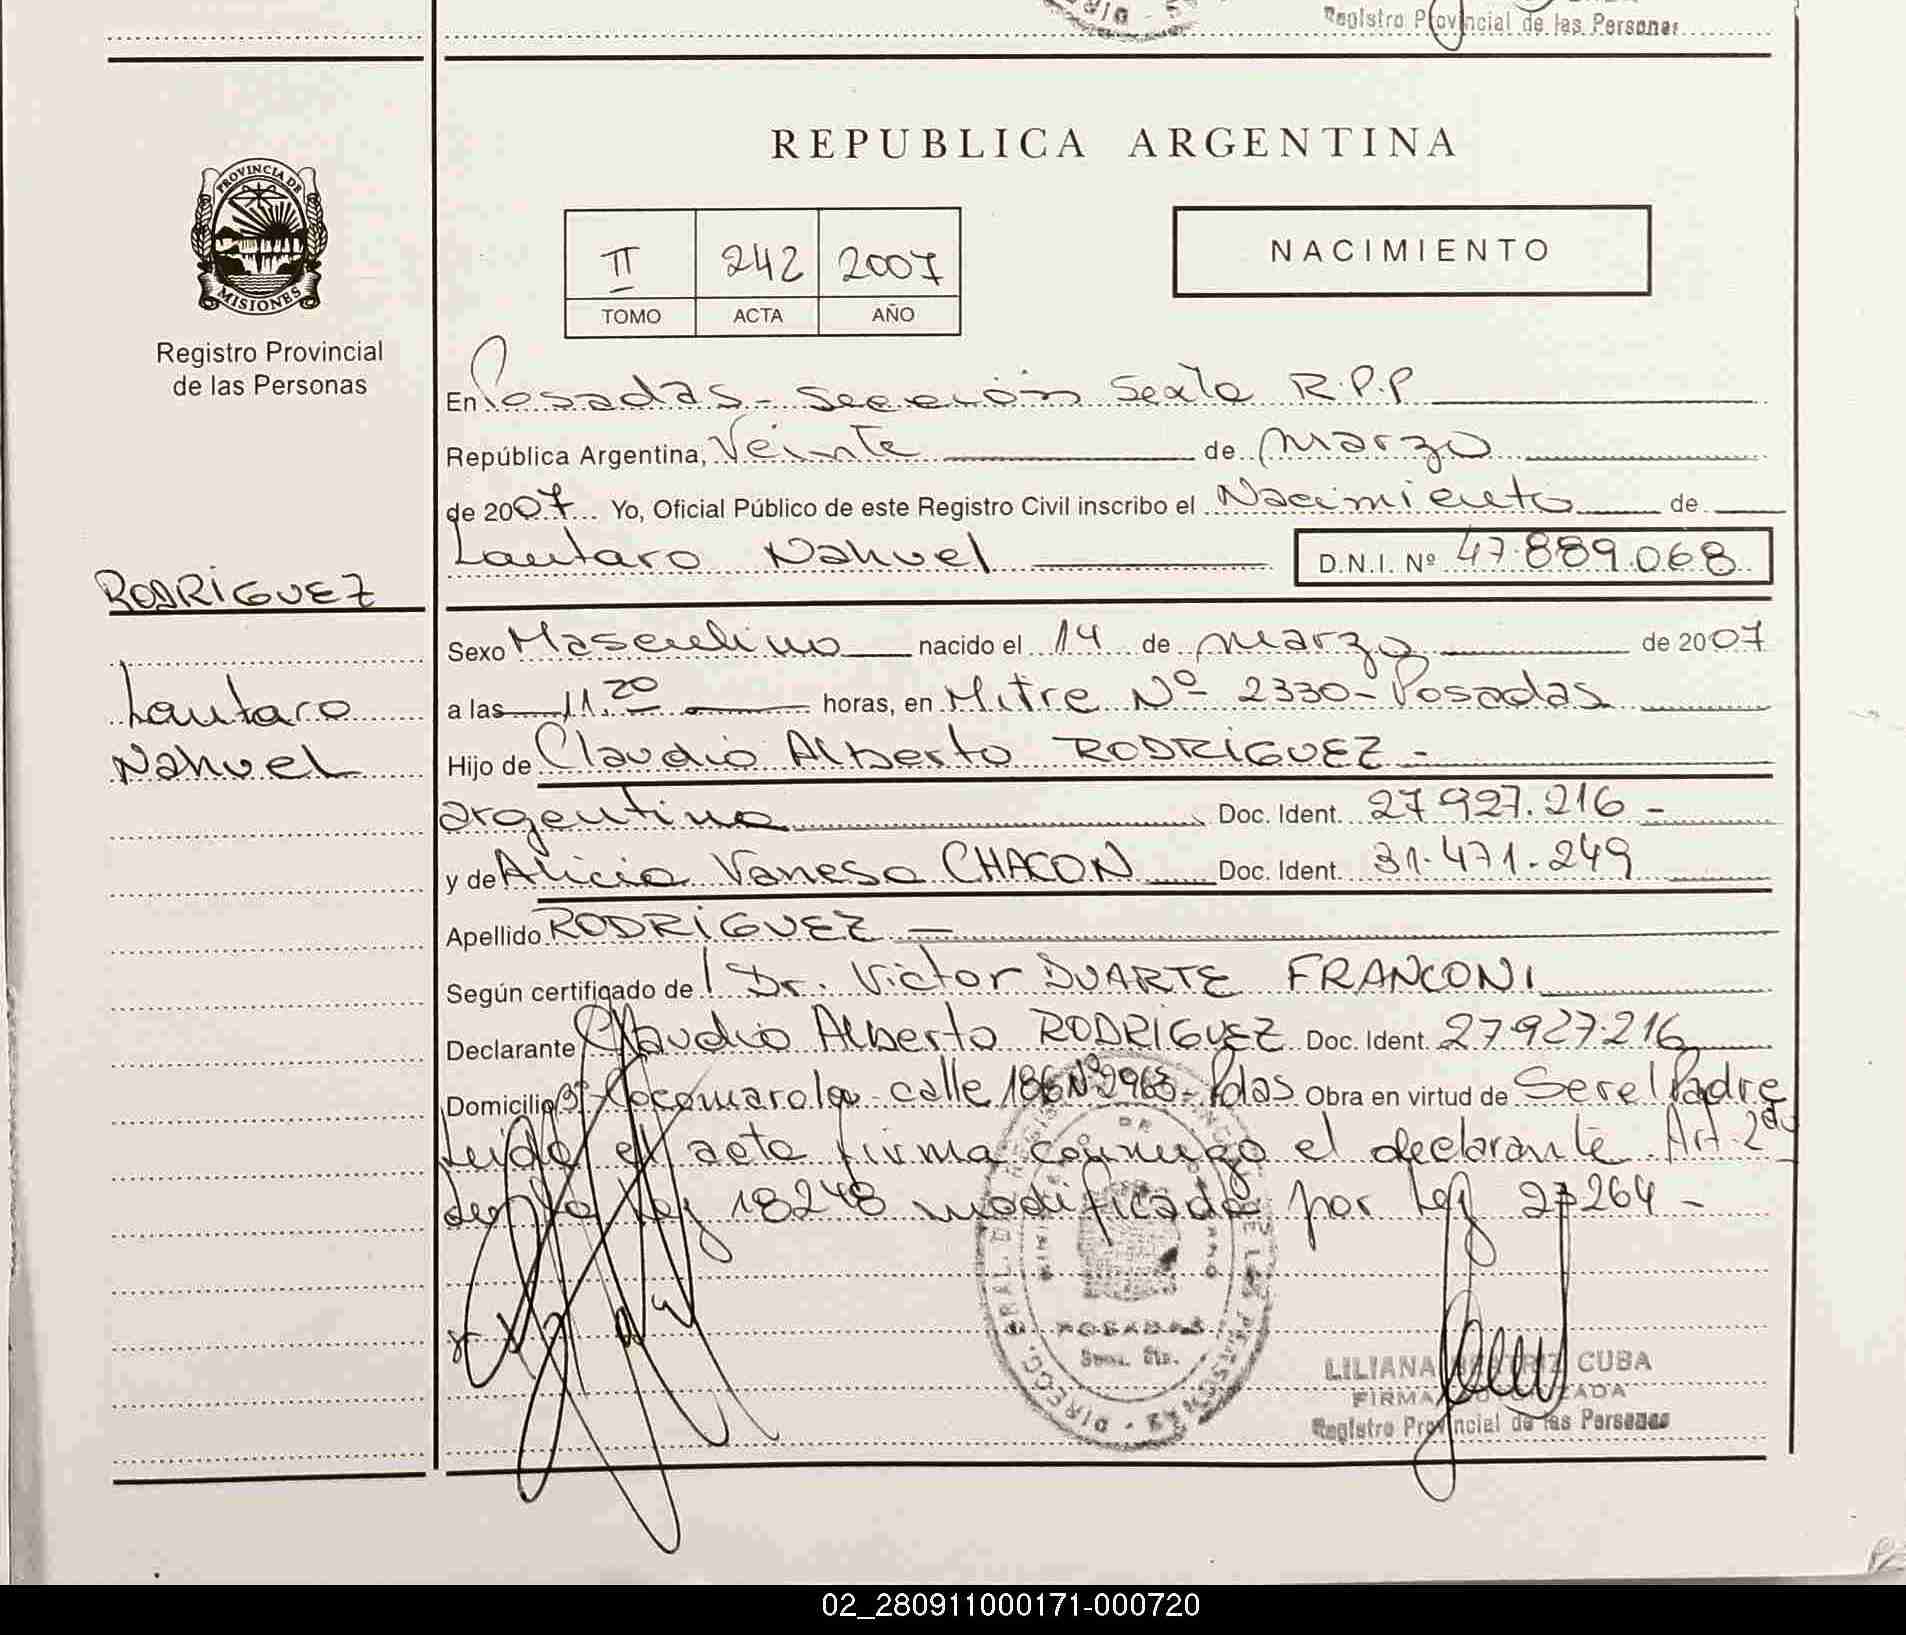 Registro Provincial de las Personas
REPUBLICA ARGENTINA
PROVINCIA DE
MISIONES
Registro Provincial
de las Personas
II 242 2007
TOMO ACTA AÑO
NACIMIENTO
En Posadas - Sección Sexta R.P.P
República Argentina, Veinte de Marzo
de 2007 Yo, Oficial Público de este Registro Civil inscribo el Nacimiento de
Lautaro Nahuel D.N.I. Nº 47.889.068
RODRIGUEZ
Lautaro
Nahuel
Sexo Masculino nacido el 14 de Marzo de 2007
a las 11.20 horas, en Mitre Nº 2330 - Posadas
Hijo de Claudio Alberto RODRIGUEZ -
argentino Doc. Ident. 27.927.216 -
y de Alicia Vanesa CHACON Doc. Ident. 31.471.249
Apellido RODRIGUEZ -
Según certificado de Dr. Victor DUARTE FRANCONI
Declarante Claudio Alberto RODRIGUEZ Doc. Ident. 27.927.216
Domicilio Bº Cocomarola calle 186 Nº 2963 - Pdas Obra en virtud de Ser el Padre
Leída el acta firma conmigo el declarante Art. 2do
de la Ley 18248 modificada por Ley 23264 -
POSADAS
Secc. 6ta.
LILIANA BEATRIZ CUBA
FIRMA AUTORIZADA
Registro Provincial de las Personas
02_280911000171-000720